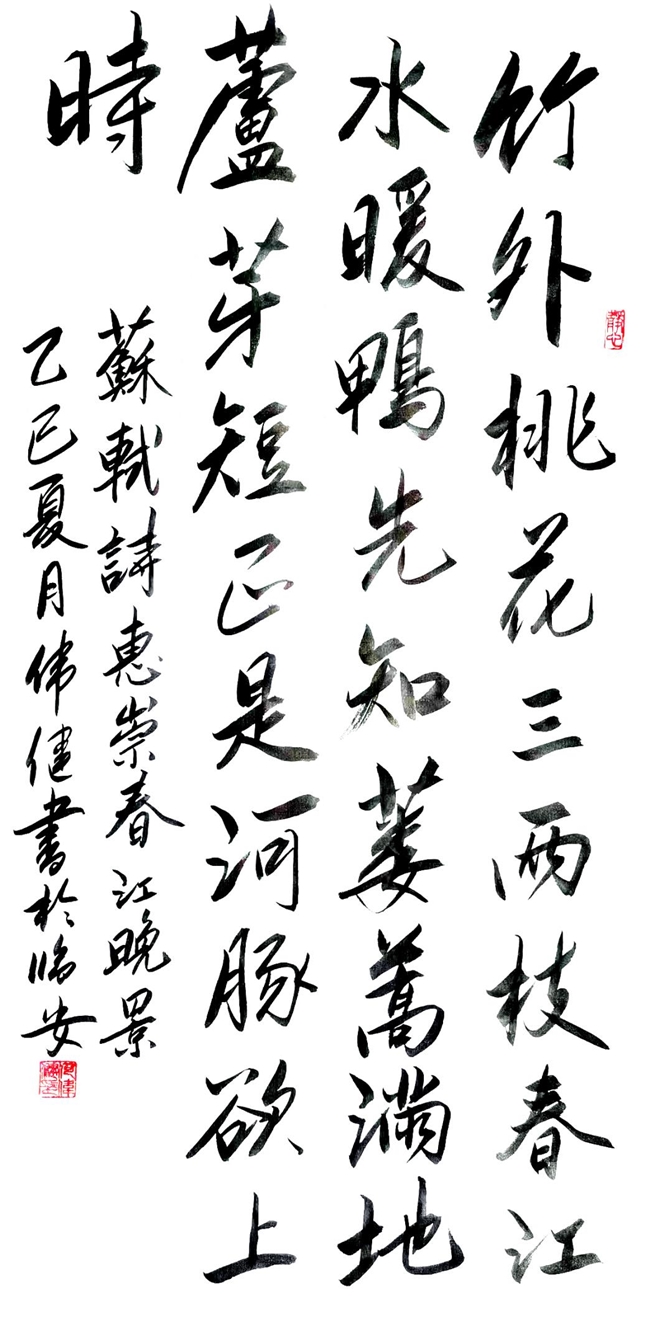 竹外桃花三两枝春江
水暖鴨先知蒌蒿满地
蘆芽短正是河豚欲上
時
蘇軾詩惠崇春江晚景
乙巳夏月伟健書於临安
静心